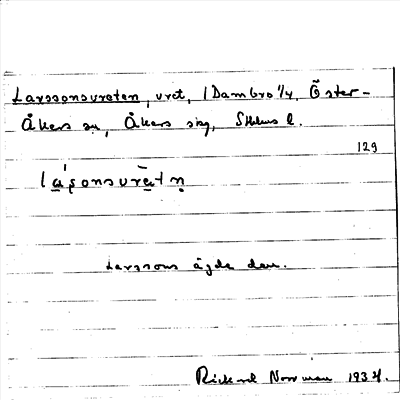 Larssonsvreten, vret, 1 Dambro 1/4, Öster-
Åkers sn, Åkers skg, Sthlms l.
129
la̍sonsvrētn̥
Larssons ägde den.
Rickard Norrman 1934.